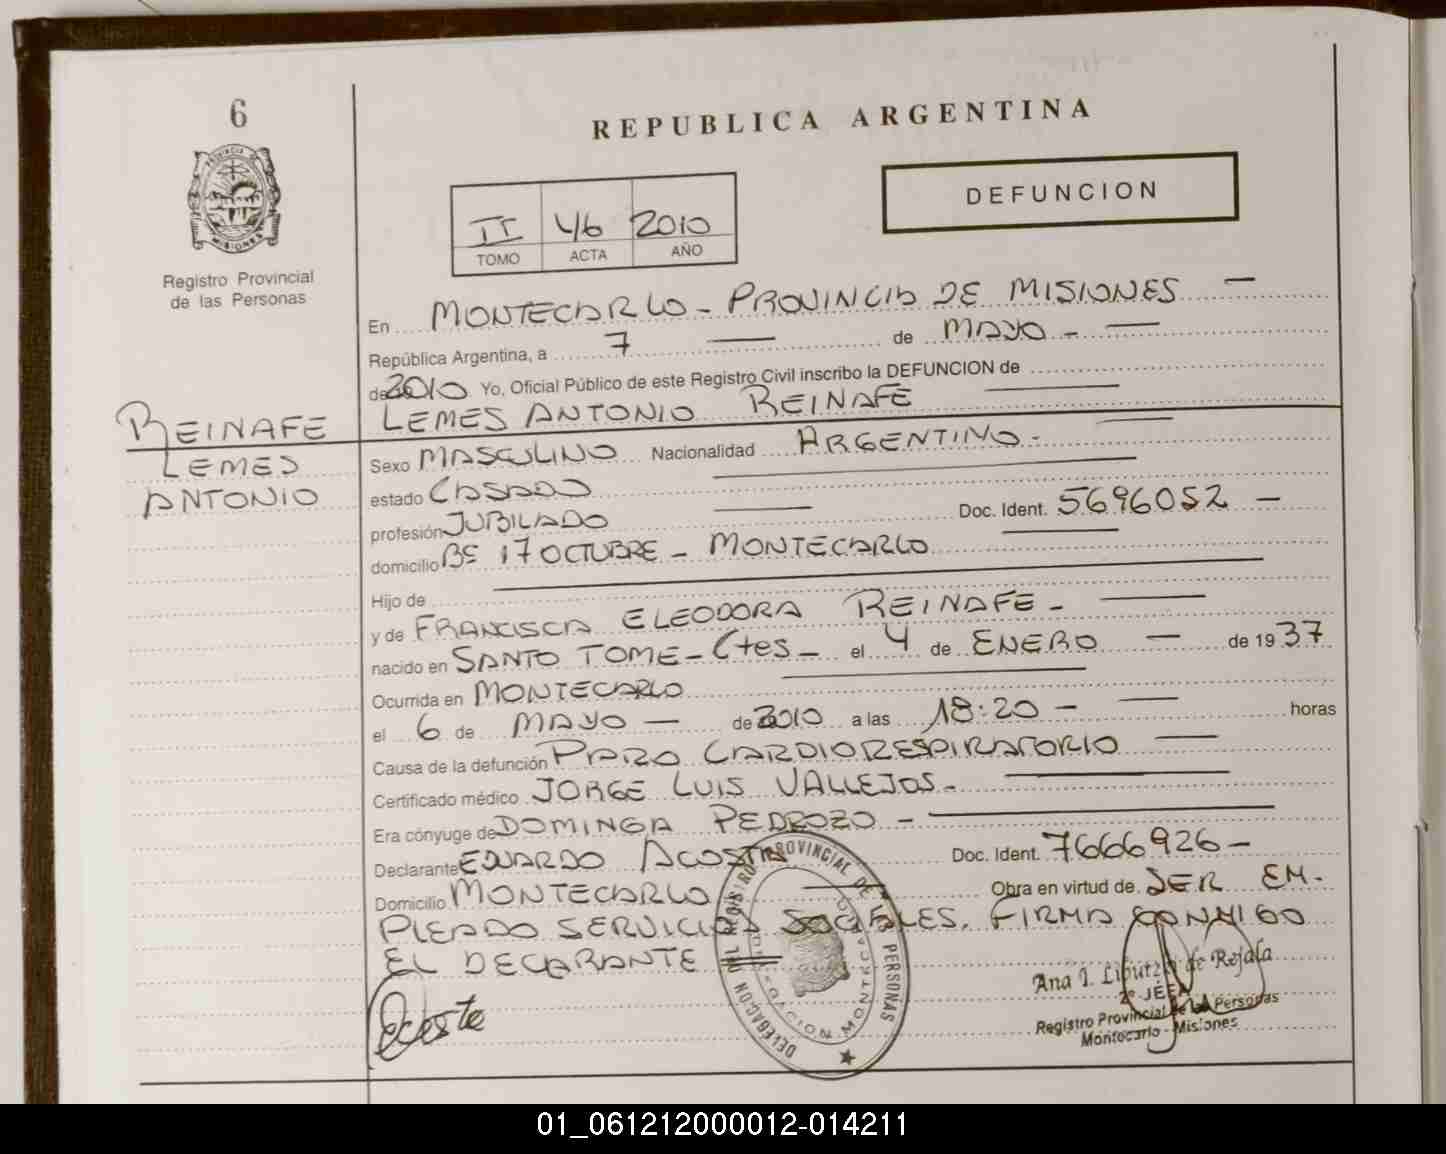 6
PROVINCIA DE
MISIONES
Registro Provincial
de las Personas
REPUBLICA ARGENTINA
DEFUNCION
II 46 2010
TOMO ACTA AÑO
En MONTECARLO - PROVINCIA DE MISIONES —
República Argentina, a 7 — de MAYO - —
de 2010 Yo, Oficial Público de este Registro Civil inscribo la DEFUNCION de
LEMES ANTONIO REINAFE
REINAFE
LEMES
ANTONIO
Sexo MASCULINO Nacionalidad ARGENTINO -
estado CASADO
profesión JUBILADO — Doc. Ident. 5696052 —
domicilio Bº 17 OCTUBRE - MONTECARLO
Hijo de —
y de FRANCISCA ELEODORA REINAFE - —
nacido en SANTO TOME - Ctes - el 4 de ENERO — de 1937
Ocurrida en MONTECARLO —
el 6 de MAYO — de 2010 a las 18:20 - — horas
Causa de la defunción PARO CARDIORESPIRATORIO —
Certificado médico JORGE LUIS VALLEJOS - —
Era cónyuge de DOMINGA PEDROZO - —
Declarante EDUARDO ACOSTA Doc. Ident. 7666926 -
Domicilio MONTECARLO — Obra en virtud de SER EM-
PLEADO SERVICIOS SOCIALES. FIRMA CONMIGO
EL DECLARANTE
DELEGACION DEL REGISTRO PROVINCIAL DE PERSONAS
DELEGACION MONTECARLO
Ana I. de Rejala
2º JEFA
Registro Provincial de las Personas
Montecarlo - Misiones
01_061212000012-014211